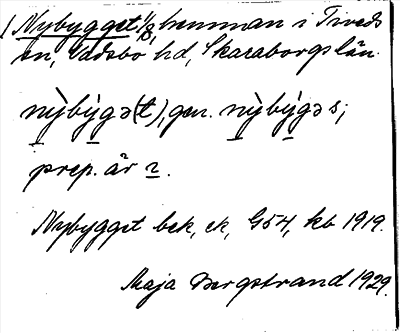 Nybygget, 1/8 hemman i Tiveds
sn, Vadsbo hd, Skaraborgs län.
nẏ̠̀bẏ̠́gə(t), gen. nẏ̠̀bẏ̠́gəs;
prep. är 2.
Nybygget bek, ek, G54, kb 1919.
Maja Bergstrand 1929.